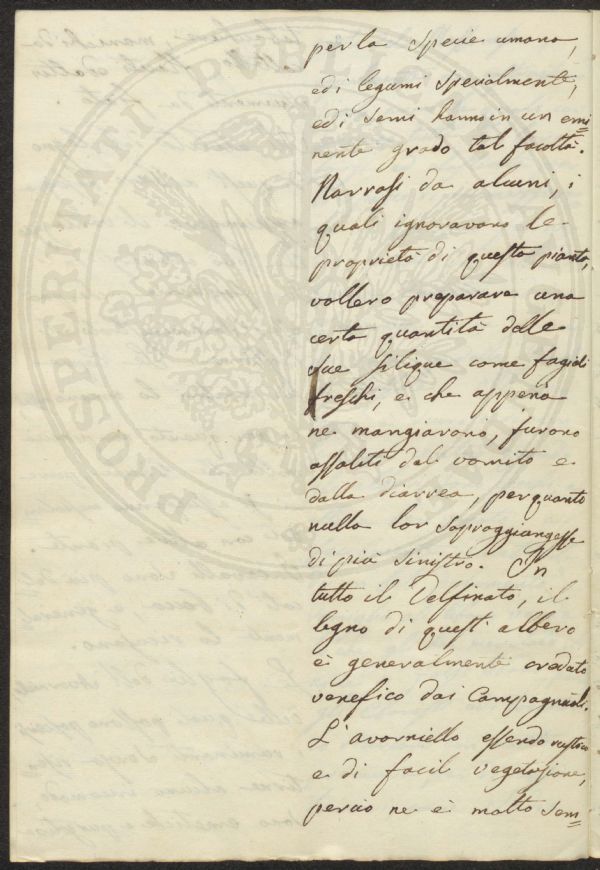 per la specie umana,
ed i legumi specialmente,
ed i semi hanno in un emi=
nente grado tal facoltà.
Narrasi da alcuni, i
quali ignoravano le
proprietà di questa pianta,
vollero preparare una
certa quantità delle
sue silique come fagioli
freschi, e che appena
ne mangiarono, furono
assaliti dal vomito e
dalla diarrea, per quanto
nulla lor sopraggiungesse
di più sinistro. In
tutto il Delfinato, il
legno di quest' albero
è generalmente creduto
venefico dai Campagnuoli.
L'avorniello essendo rustico
e di facil vegetazione,
perciò ne è molto sem=
PROSPERITATI PUBL